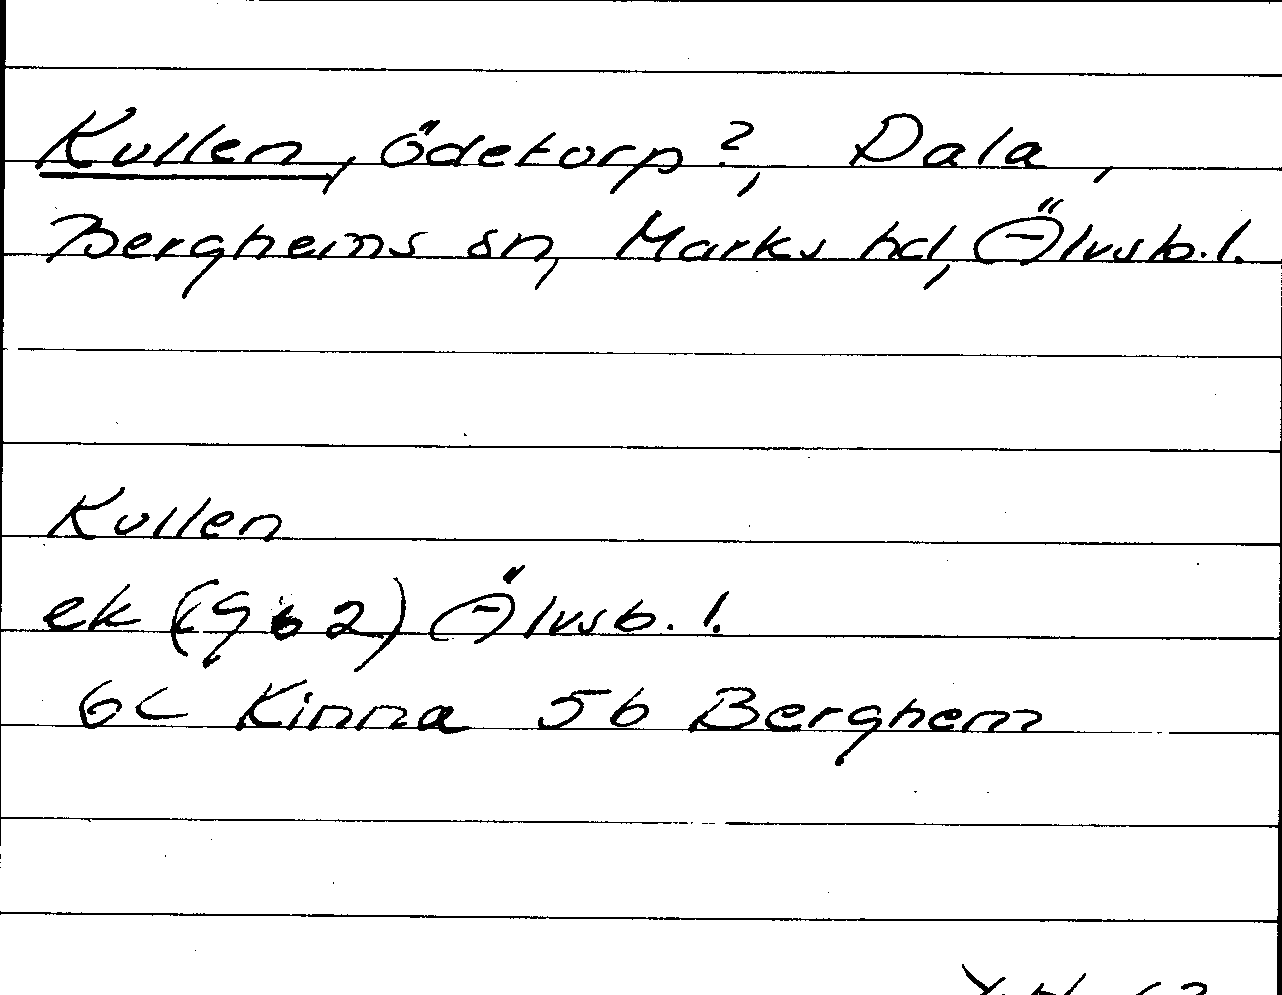 Kullen, ödetorp?, Dala,
Berghems sn, Marks hd, Älvsb. l.
Kullen
ek (962) Älvsb. l.
6C Kinna 5b Berghem